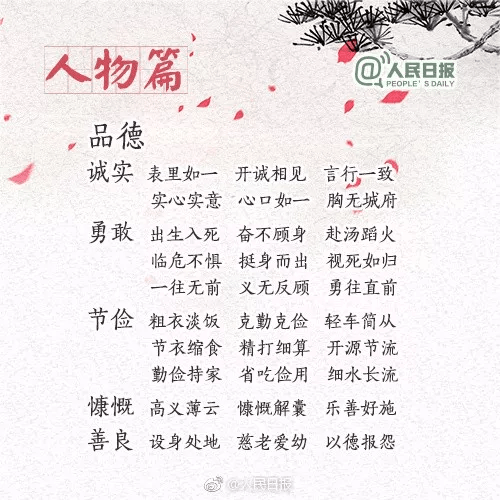 人物篇
@人民日报
PEOPLE'S DAILY
品德
诚实 表里如一 开诚相见 言行一致
实心实意 心口如一 胸无城府
勇敢 出生入死 奋不顾身 赴汤蹈火
临危不惧 挺身而出 视死如归
一往无前 义无反顾 勇往直前
节俭 粗衣淡饭 克勤克俭 轻车简从
节衣缩食 精打细算 开源节流
勤俭持家 省吃俭用 细水长流
慷慨 高义薄云 慷慨解囊 乐善好施
善良 设身处地 慈老爱幼 以德报怨
@人民日报